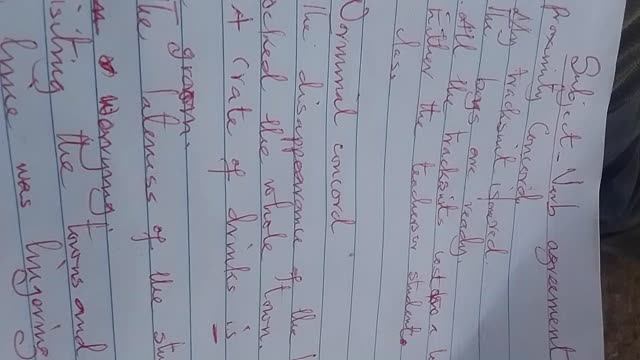 Subject - Verb agreement
Proximity Concord
My tracksuit is
The boys are ready
All the tracksuits cost a
Either the teacher or students
class
Nominal concord
The disappearance of the
shocked the whole town.
A crate of drinks is
groom.
The lateness of the
worrying.
visiting the towns and
time was lingering